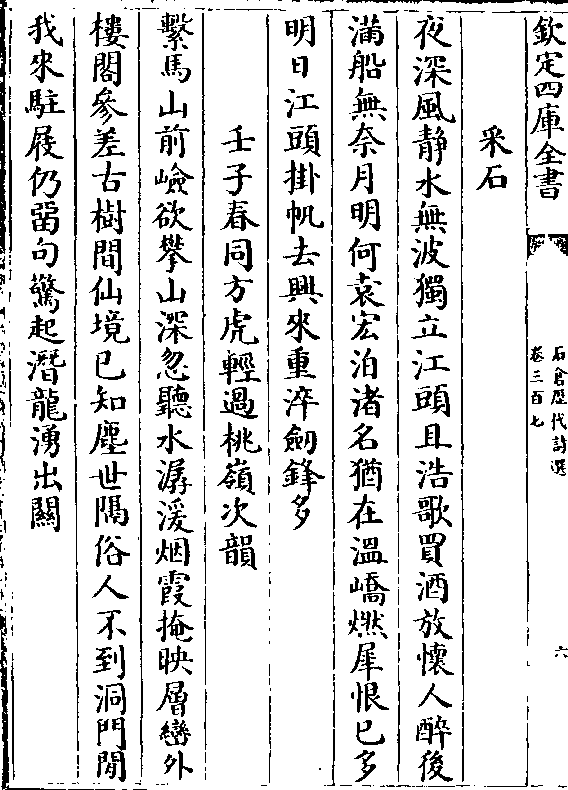 欽定四庫全書
石倉歷代詩選
卷三百七
六
采石
夜深風静水無波獨立江頭且浩歌買酒放懷人醉後
滿船無奈月明何袁宏泊渚名猶在溫嶠燃犀恨已多
明日江頭掛帆去興來重淬劒鋒多
壬子春同方虎輕過桃嶺次韻
繫馬山前嶮欲攀山深忽聽水潺湲烟霞掩映層巒外
樓閣參差古樹間仙境已知塵世隔俗人不到洞門閒
我來駐屐仍留句驚起潛龍湧出關